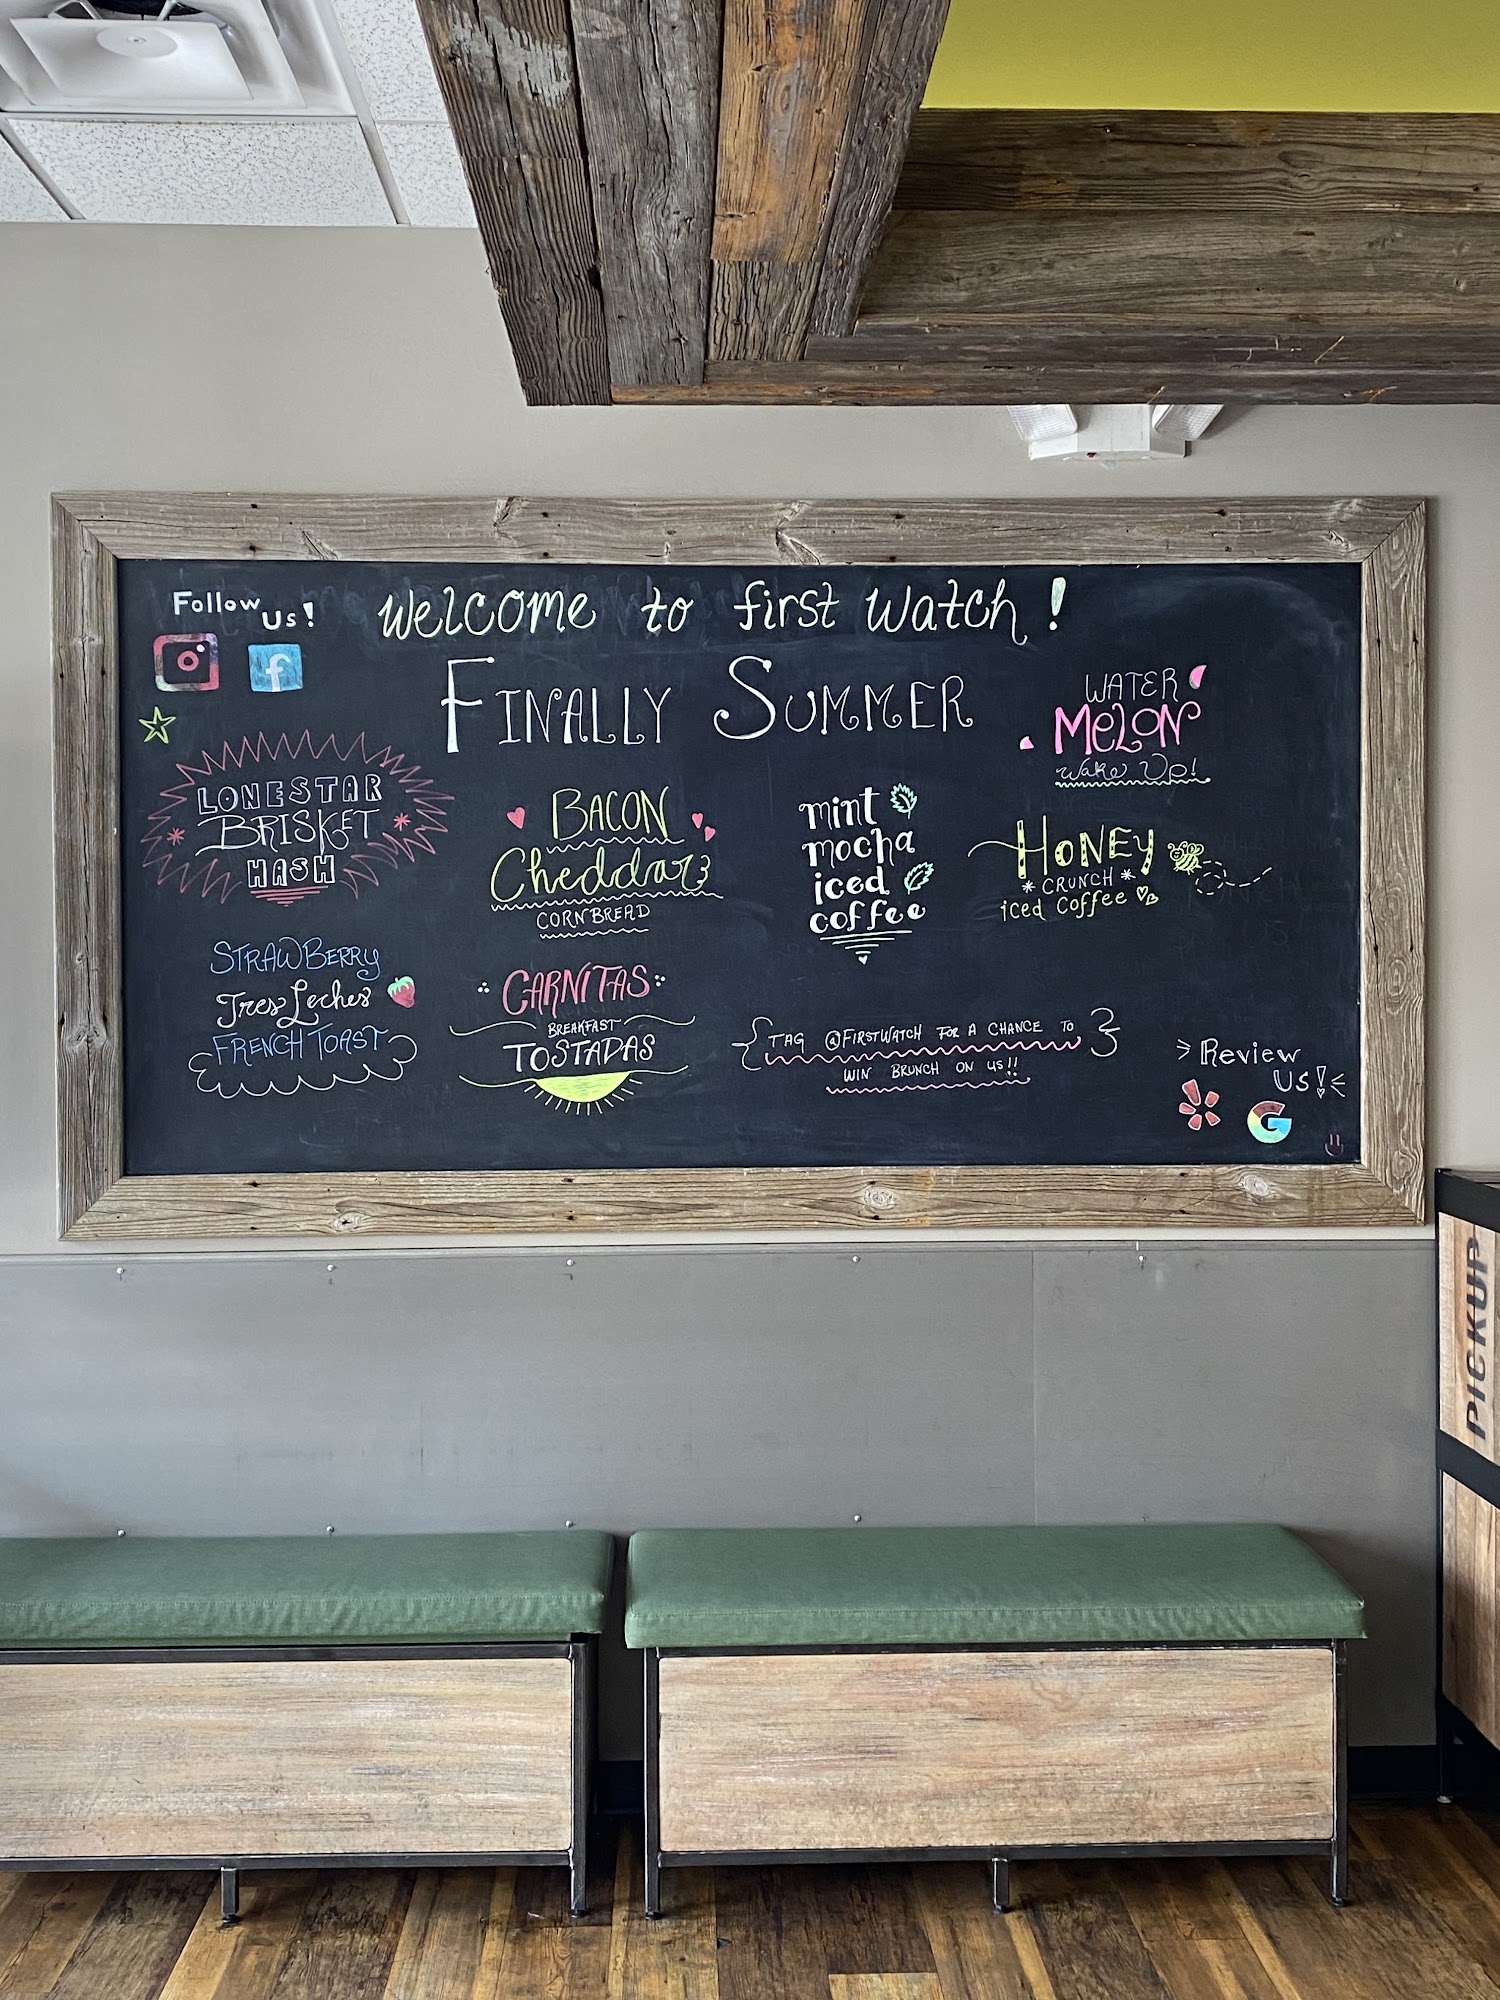 Follow
Us!
welcome to first Watch!
FINALLY SUMMER
LONESTAR
BRISKET
HASH
BACON
Cheddar
CORNBREAD
mint
mocha
iced
coffee
WATER
MELON
Wake Up!
HONEY
CRUNCH
iced Coffee
STRAWBERRY
Tres Leches
FRENCH TOAST
CARNITAS
BREAKFAST
TOSTADAS
{TAG @FIRSTWATCH FOR A CHANCE TO}
WIN BRUNCH ON US!!
Review
US!
PICKUP